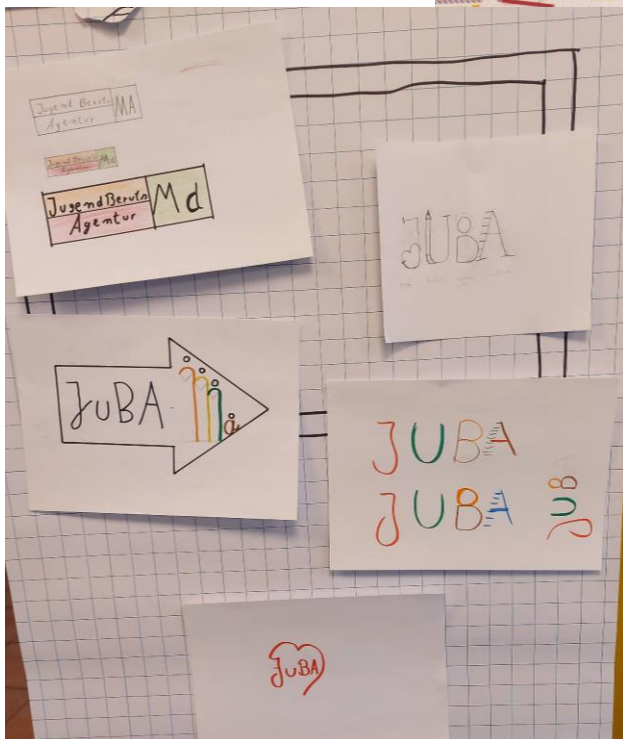 Jugend Berufs
Agentur
MA
Jugend Berufs
Agentur
Md
JugendBerufs
Agentur
Md
JUBA
JuBA
JUBA
JUBA
JUBA
JuBA